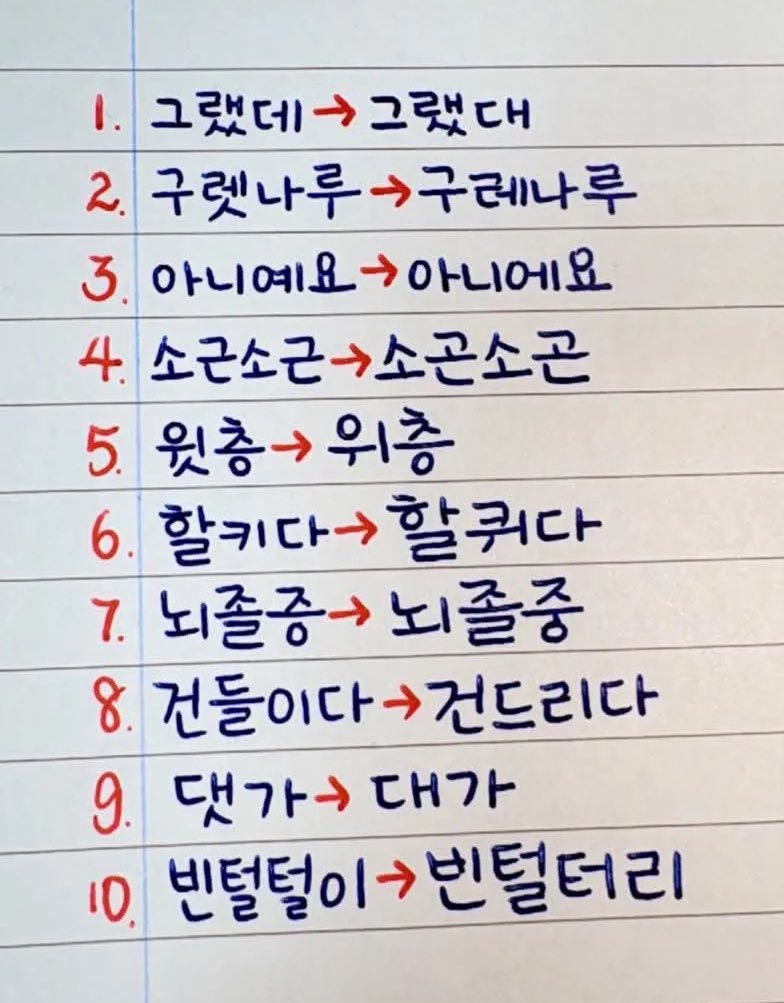 1. 그랬데→그랬대
2. 구렛나루→구레나루
3. 아니예요→아니에요
4. 소근소근→소곤소곤
5. 윗층→위층
6. 할키다→할퀴다
7. 뇌졸증→뇌졸중
8. 건들이다→건드리다
9. 댓가→대가
10. 빈털털이→빈털터리